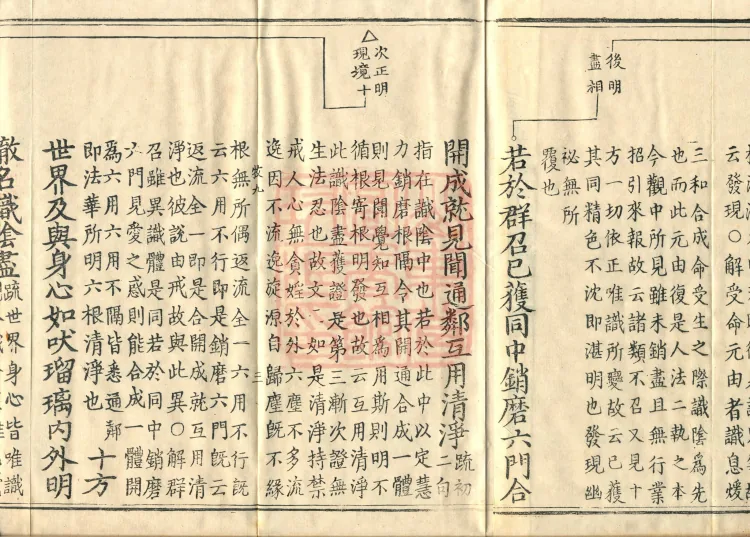 云發現○解受命元由者識息煖
三和合成命受生之際識陰為先
也而此元由復是人法二執之本
今觀中所見雖未銷盡且無行業
招引來報故云諸類不召又見十
方一切依正唯識所變故云已獲
其同精色不沈即湛明也發現幽
祕無所
覆也
後明
盡相
若於群召已獲同中銷磨六門合
次正明
現境十
開成就見聞通鄰互用清淨疏初二句
指在識陰中也若於此中以定慧
力銷磨根隔令其開通合成一體
則見聞覺知互相為用斯則明不
循根寄根明發也故云互用清淨
此識陰盡獲證是第三漸次證無
生法忍也故文云如是清淨持禁
戒人心無貪婬於外六塵不多流
逸因不流逸旋源自歸塵既不緣
三
根無所偶返流全一六用不行既
云六用不行即是銷磨六門既云
返流全一即是合開成就互用清
淨也彼說由戒故與此異○解群
召雖異識體是同若於同中銷磨
六門見愛之惑則能合成一體開
為六用六用不隔皆悉通鄰
即法華所明六根清淨也
十方
世界及與身心如吠瑠璃內外明
徹名識陰盡疏世界身心皆唯識